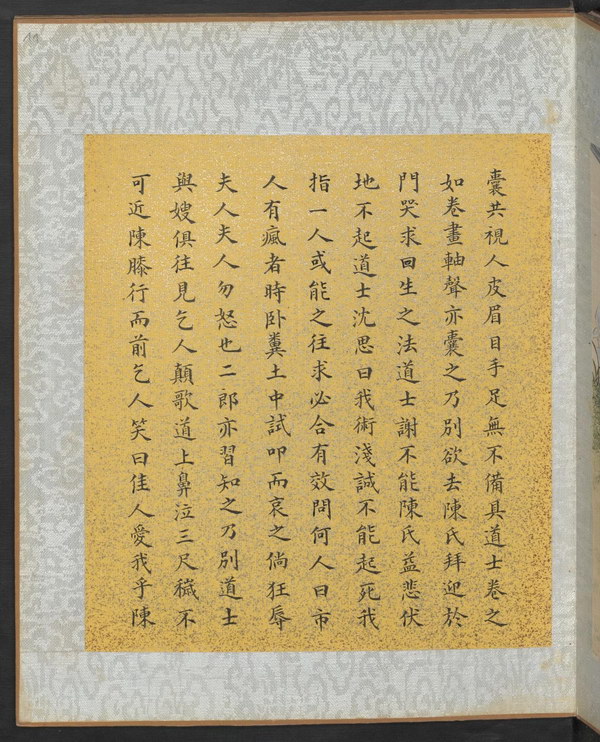 囊共視人皮眉目手足無不備具道士卷之
如卷畫軸聲亦囊之乃別欲去陳氏拜迎於
門哭求回生之法道士謝不能陳氏益悲伏
地不起道士沈思曰我術淺誠不能起死我
指一人或能之往求必合有效問何人曰市
人有瘋者時卧糞土中試叩而哀之倘狂辱
夫人夫人勿怒也二郎亦習知之乃別道士
與嫂俱往見乞人顛歌道上鼻泣三尺穢不
可近陳膝行而前乞人笑曰佳人愛我乎陳